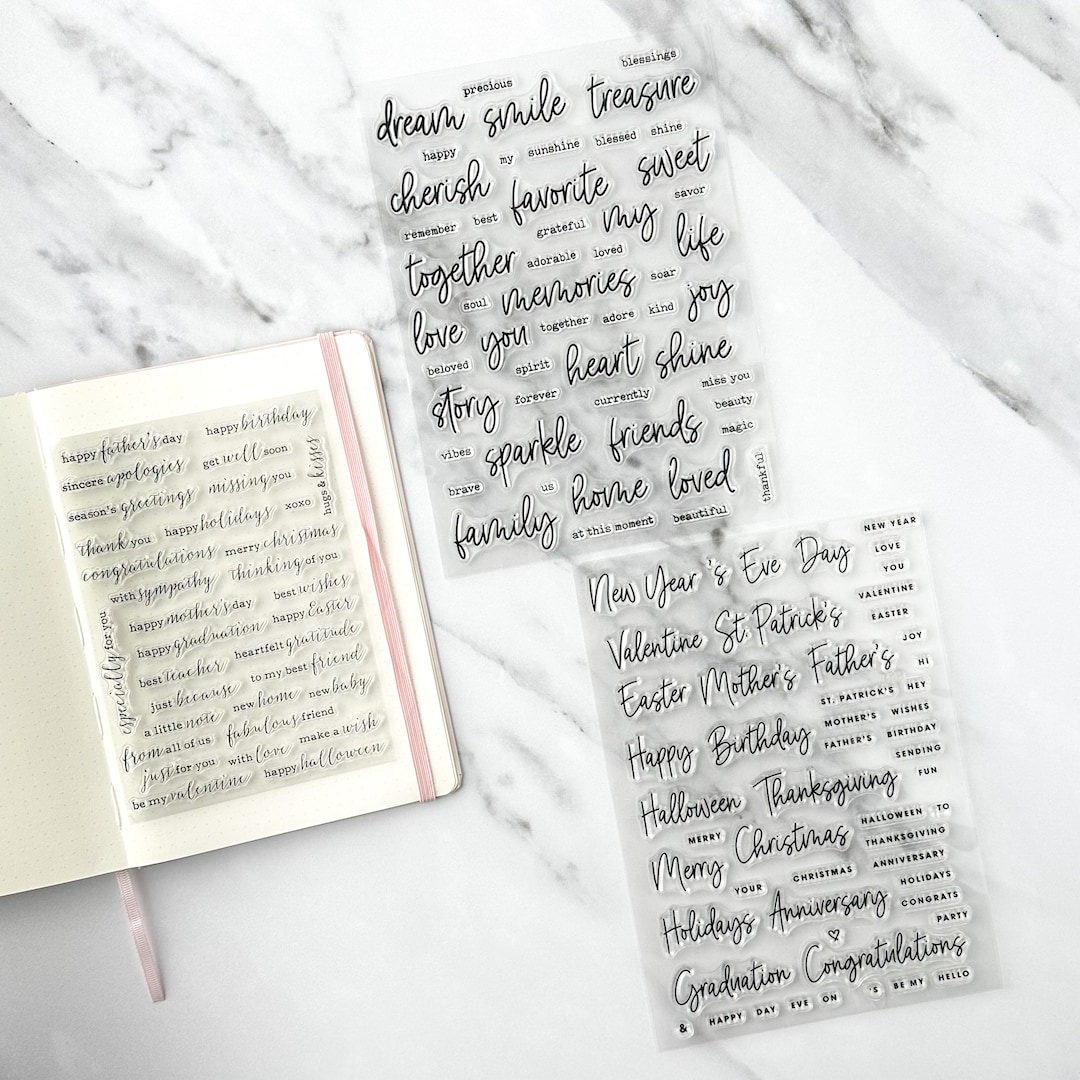 happy father's day
happy birthday
sincere apologies
get well soon
season's greetings
missing you
hugs & kisses
thank you
happy holidays
xoxo
congratulations
merry christmas
with sympathy
thinking of you
happy mother's day
best wishes
happy graduation
happy Easter
especially for you
best teacher
heartfelt gratitude
just because
to my best friend
a little note
new home
new baby
from all of us
fabulous friend
just for you
with love
make a wish
be my valentine
happy halloween
precious
blessings
dream smile treasure
happy my sunshine blessed shine
cherish favorite sweet
remember best grateful my savor
together adorable loved life
soul memories soar
love you together adore kind joy
beloved spirit heart shine
story forever currently miss you
beauty
vibes sparkle friends magic
brave us home loved thankful
family at this moment beautiful
New Year 's Eve Day
NEW YEAR
LOVE
YOU
Valentine St. Patrick's
VALENTINE
EASTER
JOY
Easter Mother's Father's
HI
ST. PATRICK'S HEY
MOTHER'S WISHES
Happy Birthday
FATHER'S BIRTHDAY
SENDING
FUN
Halloween Thanksgiving
HALLOWEEN TO
MERRY
THANKSGIVING
Merry Christmas
ANNIVERSARY
YOUR CHRISTMAS
HOLIDAYS
Holidays Anniversary
CONGRATS
PARTY
Graduation Congratulations
& HAPPY DAY EVE ON 'S BE MY HELLO